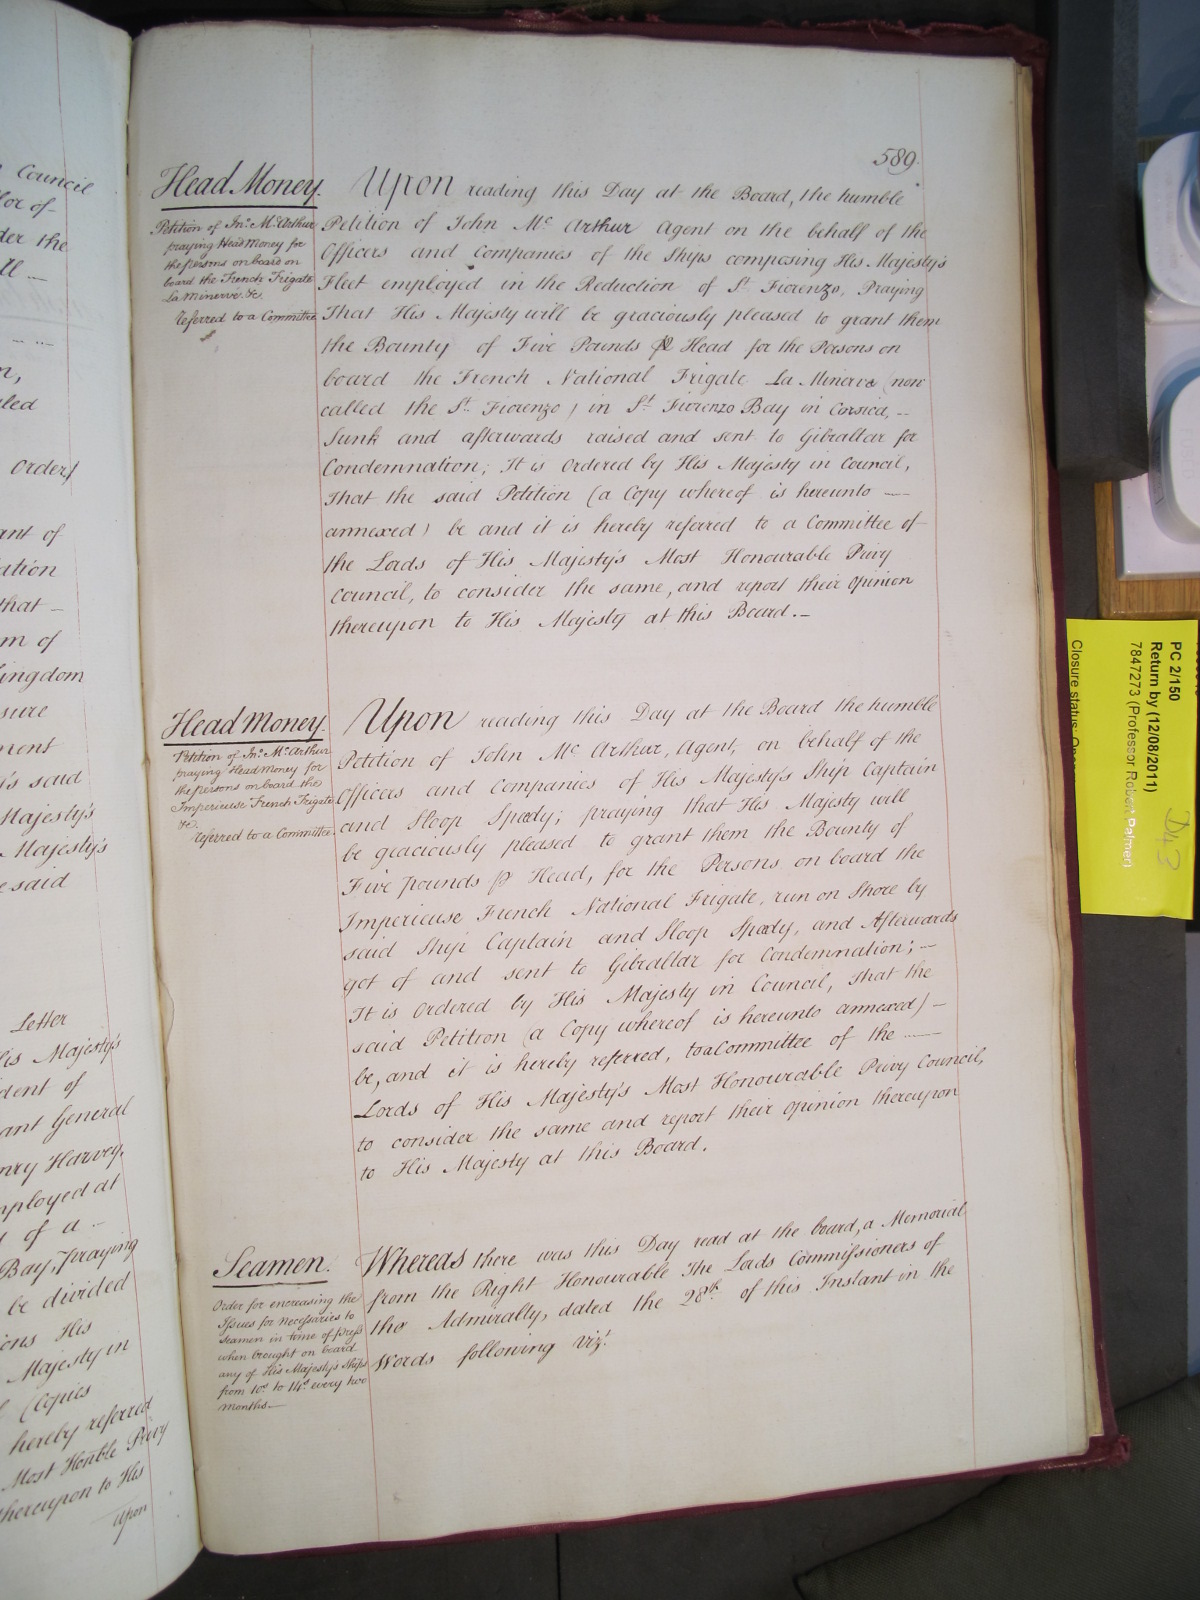 Council
der the
Order/
ant of
ation
that —
m of
ingdom
sure
's said
Majesty's
Majesty's
e said
Letter
His Majesty's
dent of
ant General
nry Harvey,
mployed at
of a -
Bay, praying
be divided
ions His
Majesty in
(Copies
hereby referred
Most Honble Privy
thereupon to His
Upon
589.
Head Money.
Petition of Jno. Mc. Arthur
praying Head Money for
the persons on board on
board the French Frigate
La Minerve &c.
referred to a Committee
Upon reading this Day at the Board, the humble
Petition of John Mc Arthur Agent on the behalf of the
Officers and Companies of the Ships composing His Majesty's
Fleet employed in the Reduction of St. Fiorenzo, Praying
That His Majesty will be graciously pleased to grant them
the Bounty of Five Pounds ⅌ Head for the Persons on
board the French National Frigate La Minerve (now
called the St. Fiorenzo) in St. Fiorenzo Bay in Corsica, --
Sunk and afterwards raised and sent to Gibraltar for
Condemnation; It is Ordered by His Majesty in Council,
That the said Petition (a Copy whereof is hereunto —
annexed) be and it is hereby referred to a Committee of
the Lords of His Majesty's Most Honourable Privy
Council, to consider the same, and report their Opinion
thereupon to His Majesty at this Board. —
Head Money.
Petition of Jno. Mc. Arthur
praying Head Money for
the persons on board the
Imperieuse French Frigate
&c.
referred to a Committee.
Upon reading this Day at the Board the humble
Petition of John Mc Arthur, Agent, on behalf of the
Officers and Companies of His Majesty's Ship Captain
and Sloop Speedy; praying that His Majesty will
be graciously pleased to grant them the Bounty of
Five pounds ⅌ Head, for the Persons on board the
Imperieuse French National Frigate, run on Shore by
said Ship Captain and Sloop Speedy, and Afterwards
got of and sent to Gibraltar for Condemnation; —
It is Ordered by His Majesty in Council, that the
said Petition (a Copy whereof is hereunto annexed) —
be, and it is hereby referred, to a Committee of the —
Lords of His Majesty's Most Honourable Privy Council,
to consider the same and report their Opinion thereupon
to His Majesty at this Board.
Seamen.
Order for encreasing the
Issues for necessaries to
Seamen in time of press
when brought on board
any of His Majesty's Ships
from 10s. to 14s. every two
months. —
Whereas there was this Day read at the board, a Memorial
from the Right Honourable The Lords Commissioners of
the Admiralty, dated the 28th. of this Instant in the
Words following Vizt.
PC 2/150
Return by (12/08/2011)
7847273 (Professor Robert Palmer)
Closure status:
D43